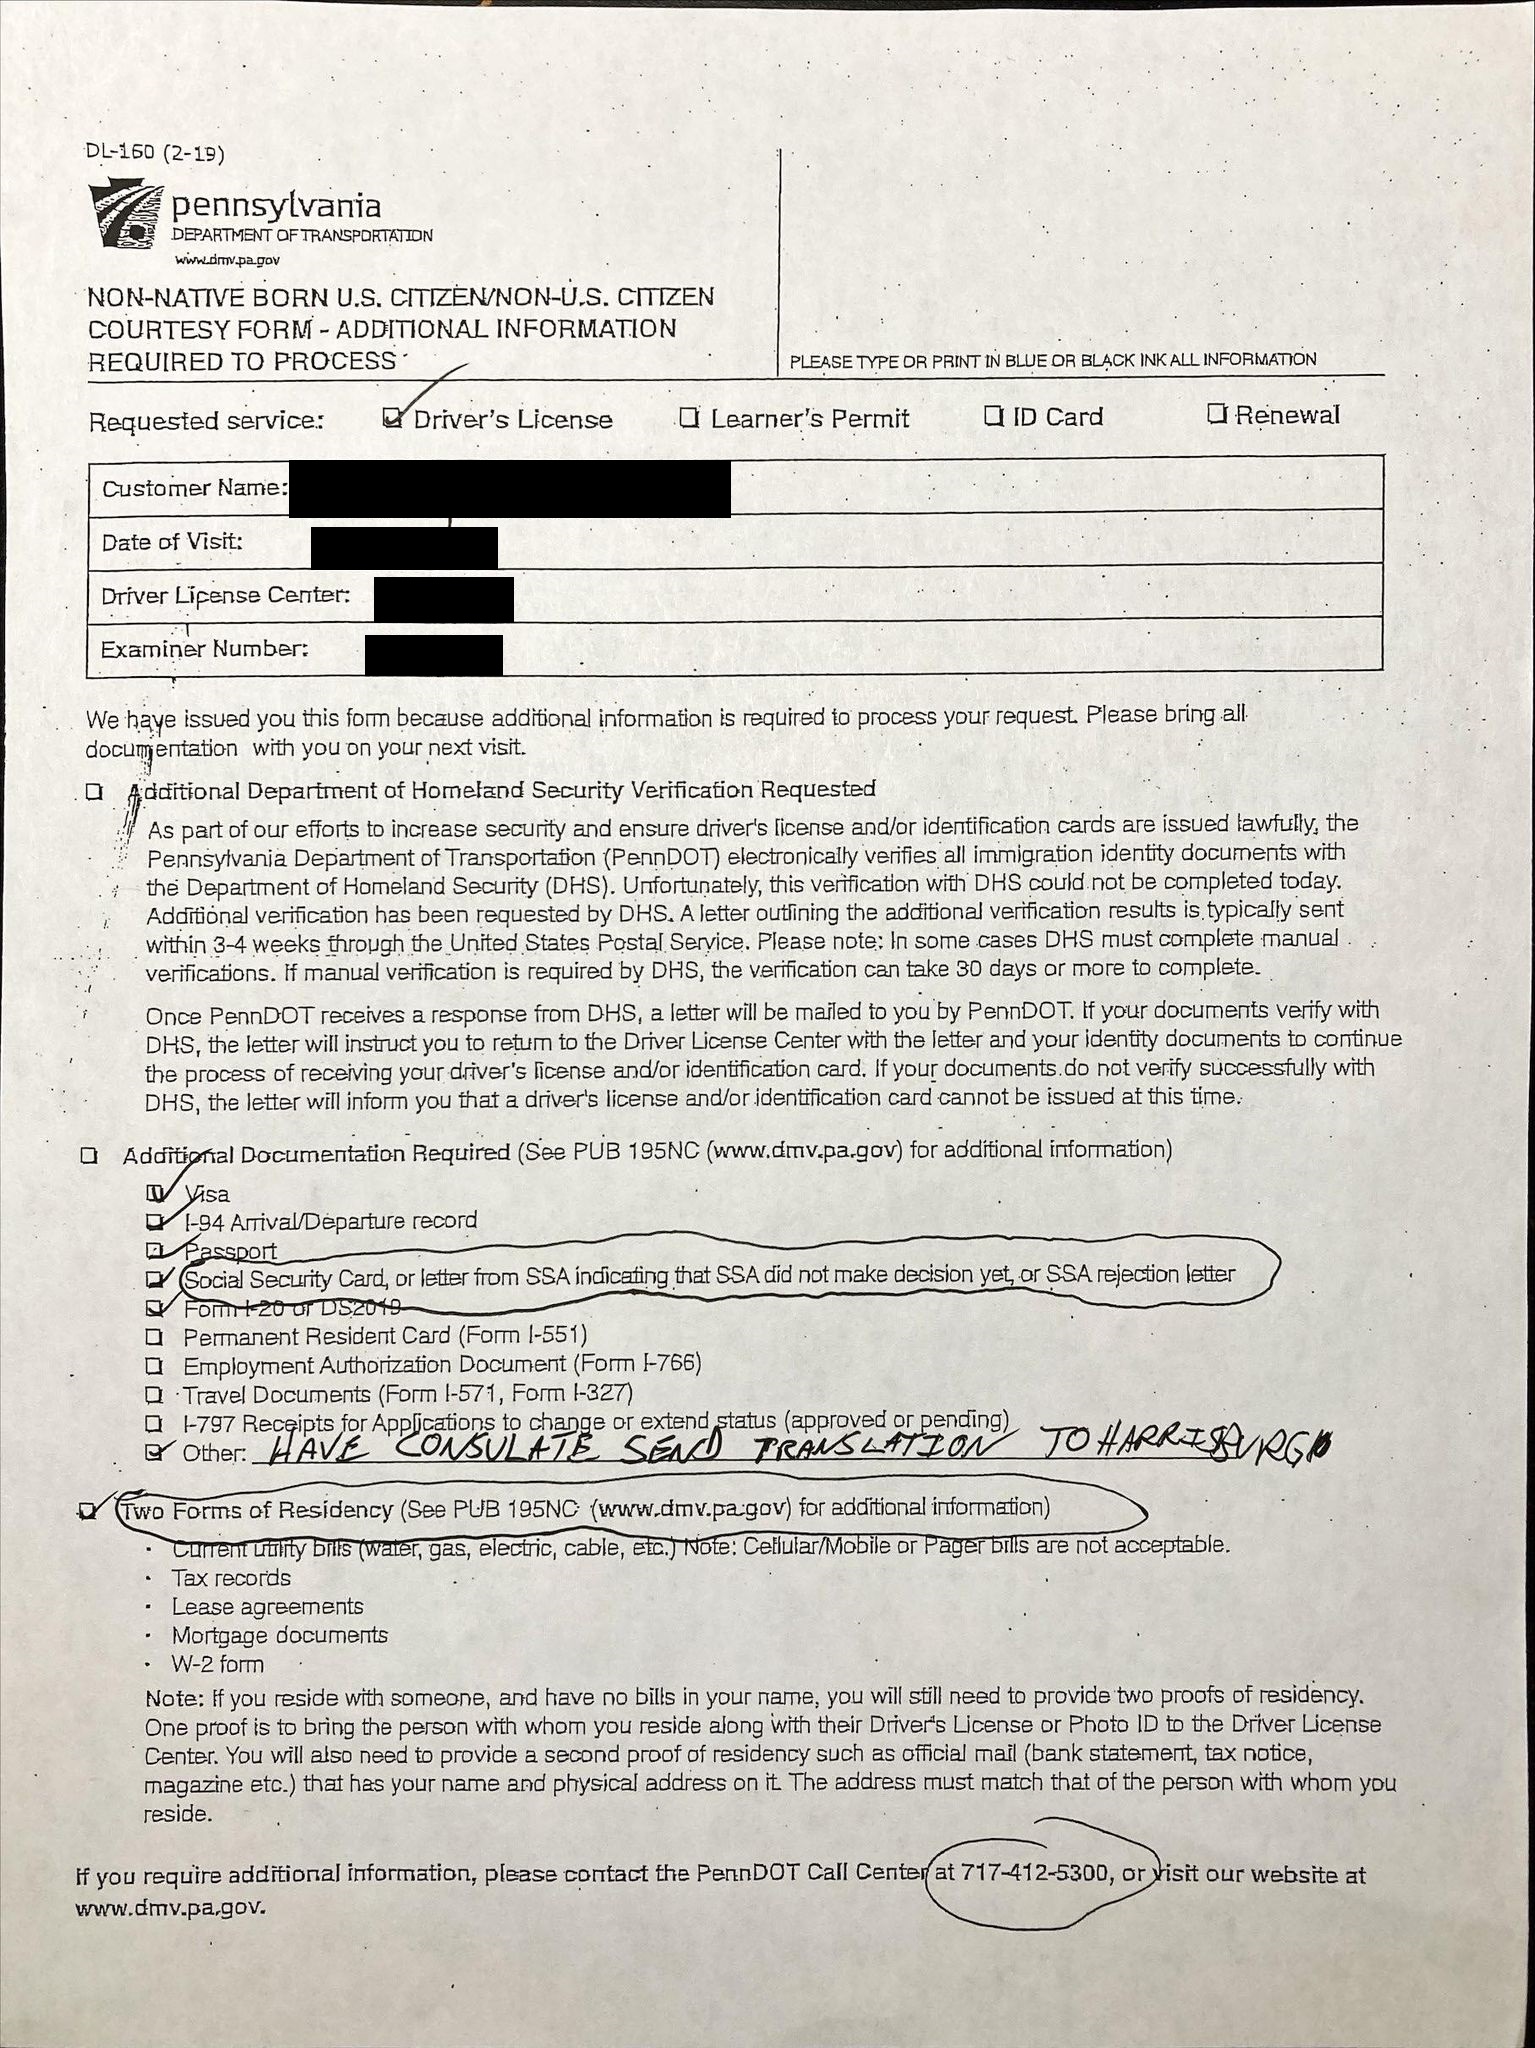 DL-160 (2-19)
pennsylvania
DEPARTMENT OF TRANSPORTATION
www.dmv.pa.gov
NON-NATIVE BORN U.S. CITIZEN/NON-U.S. CITIZEN
COURTESY FORM - ADDITIONAL INFORMATION
REQUIRED TO PROCESS
PLEASE TYPE OR PRINT IN BLUE OR BLACK INK ALL INFORMATION
Requested service: Driver's License Learner's Permit ID Card Renewal
Customer Name:
Date of Visit:
Driver License Center:
Examiner Number:
We have issued you this form because additional information is required to process your request. Please bring all
documentation with you on your next visit.
Additional Department of Homeland Security Verification Requested
As part of our efforts to increase security and ensure driver's license and/or identification cards are issued lawfully, the
Pennsylvania Department of Transportation (PennDOT) electronically verifies all immigration identity documents with
the Department of Homeland Security (DHS). Unfortunately, this verification with DHS could not be completed today.
Additional verification has been requested by DHS. A letter outlining the additional verification results is typically sent
within 3-4 weeks through the United States Postal Service. Please note: In some cases DHS must complete manual
verifications. If manual verification is required by DHS, the verification can take 30 days or more to complete.
Once PennDOT receives a response from DHS, a letter will be mailed to you by PennDOT. If your documents verify with
DHS, the letter will instruct you to return to the Driver License Center with the letter and your identity documents to continue
the process of receiving your driver's license and/or identification card. If your documents do not verify successfully with
DHS, the letter will inform you that a driver's license and/or identification card cannot be issued at this time.
Additional Documentation Required (See PUB 195NC (www.dmv.pa.gov) for additional information)
Visa
I-94 Arrival/Departure record
Passport
Social Security Card, or letter from SSA indicating that SSA did not make decision yet, or SSA rejection letter
Form I-20 or DS2019
Permanent Resident Card (Form I-551)
Employment Authorization Document (Form I-766)
Travel Documents (Form I-571, Form I-327)
I-797 Receipts for Applications to change or extend status (approved or pending)
Other: HAVE CONSULATE SEND TRANSLATION TO HARRISBURG
Two Forms of Residency (See PUB 195NC (www.dmv.pa.gov) for additional information)
· Current utility bills (water, gas, electric, cable, etc.) Note: Cellular/Mobile or Pager bills are not acceptable.
· Tax records
· Lease agreements
· Mortgage documents
· W-2 form
Note: If you reside with someone, and have no bills in your name, you will still need to provide two proofs of residency.
One proof is to bring the person with whom you reside along with their Driver's License or Photo ID to the Driver License
Center. You will also need to provide a second proof of residency such as official mail (bank statement, tax notice,
magazine etc.) that has your name and physical address on it. The address must match that of the person with whom you
reside.
If you require additional information, please contact the PennDOT Call Center at 717-412-5300, or visit our website at
www.dmv.pa.gov.